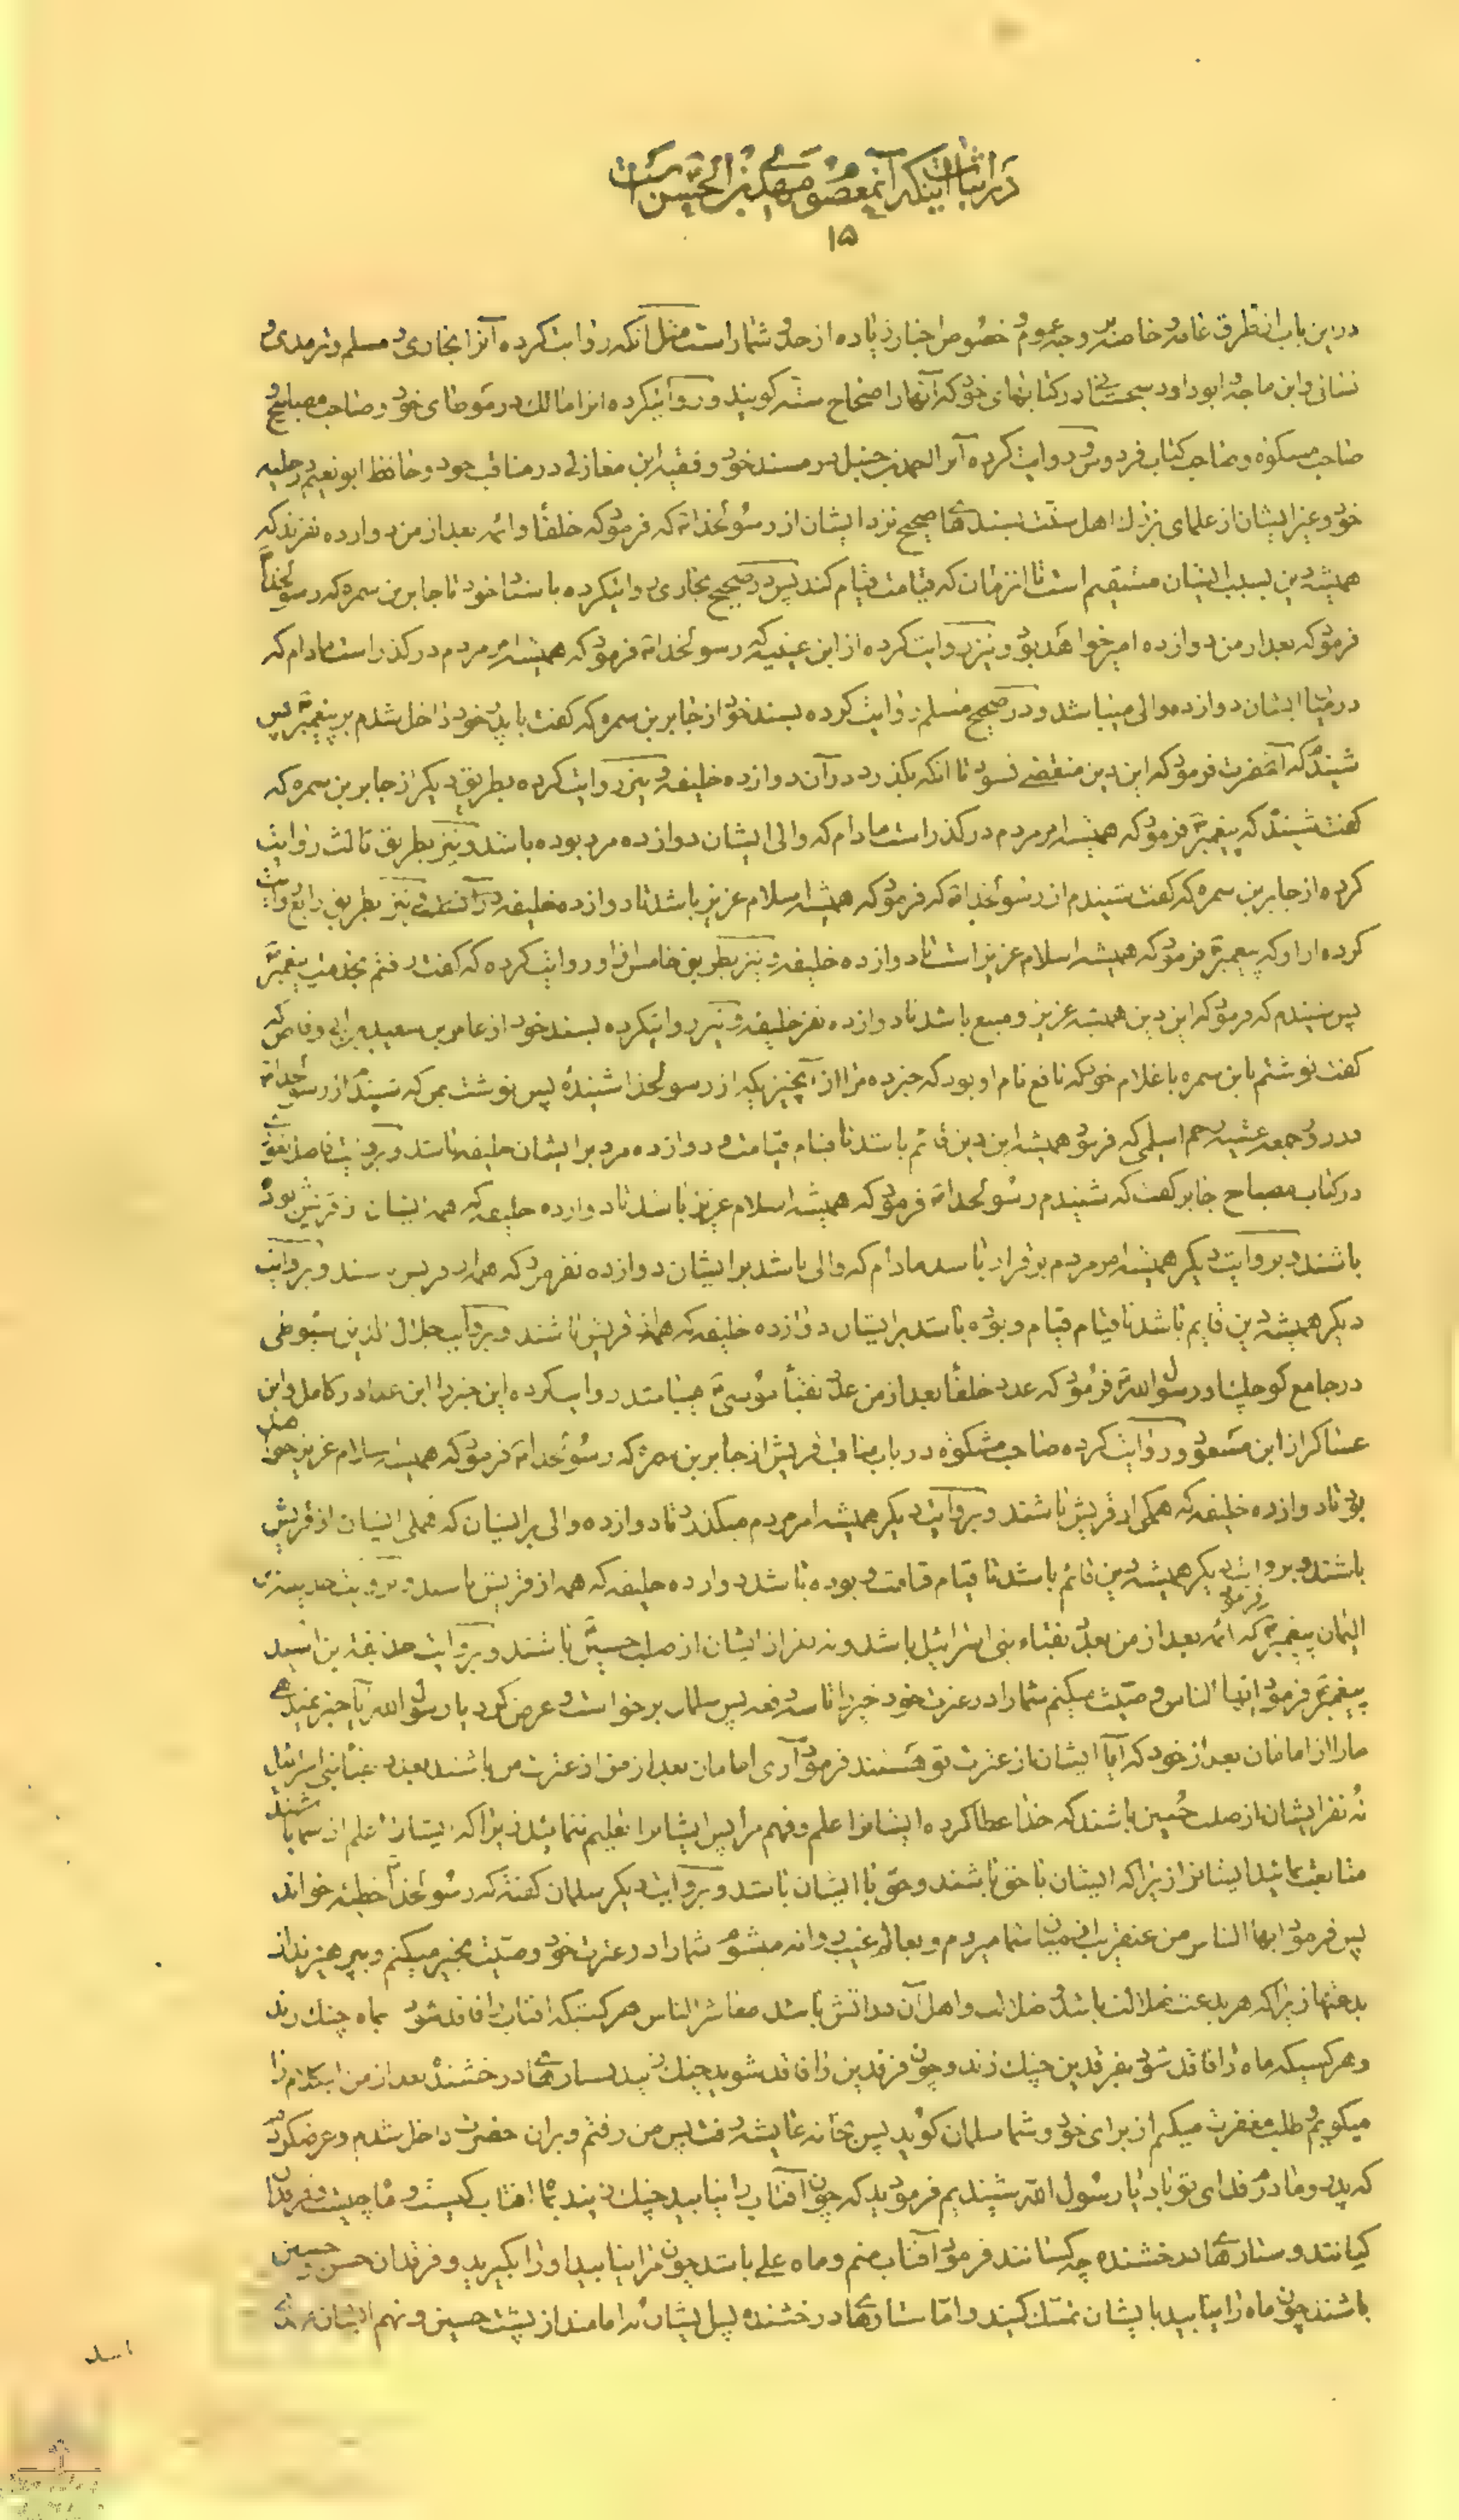 در اثبات اینکه آنمعصوم مهدی بن الحسن است
۱۵
در این باب از طرق عامه و خاصه بر وجه عموم و خصوص اخبار زیاده از حد و شمار است مثل آنکه روایت کرده آنرا بخاری و مسلم و ترمدی و
نسائی و ابن ماجه و ابو داود سجستانی در کتابهای خود که آنها را صحاح سته گویند و روایتکرده انرا مالک در موطای خود و صاحب مصابیح و
صاحب مشکوه و صاحب کتاب فردوس و روایت کرده آنرا احمد بن حنبل در مسند خود و فقیه ابن مغازلی در مناقب خود و حافظ ابو نعیم در حلیه
خود و غیر ایشان از علمای بزرك اهل سنت بسندهای صحیح نزد ایشان از رسولخدا که فرمود که خلفا و ائمه بعد از من دوازده نفرند که
همیشه دین بسبب ایشان مستقیم است تا انزمان که قیامت قیام کند پس در صحیح بخاری روایتکرده باسناد خود تا جابر بن سمره که رسولخدا
فرمود که بعد از من دوازده امیر خواهد بود و نیز روایت کرده از ابن عیینه که رسولخدا فرمود که همیشه امر مردم در گذر است مادام که
در میان ایشان دوازده والی میباشد و در صحیح مسلم روایت کرده بسند خود از جابر بن سمره که گفت با پدر خود داخل شدم بر پیغمبر پس
شنیدم که آنحضرت فرمود که این دین منقضی نشود تا انکه بگذرد در آن دوازده خلیفه و نیز روایت کرده بطریق دیگر از جابر بن سمره که
گفت شنیدم که پیغمبر فرمود که همیشه امر مردم در گذر است مادام که والی ایشان دوازده مرد بوده باشد و نیز بطریق ثالث روایت
کرده از جابر بن سمره که گفت شنیدم از رسولخدا که فرمود که همیشه اسلام عزیز باشد تا دوازده خلیفه در آن و نیز بطریق رابع روایت
کرده از او که پیغمبر فرمود که همیشه اسلام عزیز است تا دوازده خلیفه و نیز بطریق خامس از او روایت کرده که گفت رفتم بخدمت پیغمبر
پس شنیدم که فرمود که این دین همیشه عزیز و منیع باشد تا دوازده نفر خلیفه و نیز روایتکرده بسند خود از عامر بن سعید بن ابی وقاص که
گفت نوشتم بابن سمره با غلام خود که نافع نام او بود که خبر ده مرا از آنچیزیکه از رسولخدا شنیده پس نوشت بمن که شنیدم از رسولخدا
در روز جمعه عشیه رجم اسلمی که فرمود همیشه این دین قائم باشد تا قیام قیامت و دوازده مرد بر ایشان خلیفه باشد و
در کتاب مصباح جابر گفت که شنیدم رسولخدا فرمود که همیشه اسلام عزیز باشد تا دوازده خلیفه که همه ایشان از قریش بوده
باشند و بروایت دیگر همیشه امر مردم برقرار باشد مادام که والی باشد بر ایشان دوازده نفر مرد که همه از قریش باشند و بروایت
دیگر همیشه دین قایم باشد تا قیام قیام و بوده باشد بر ایشان دوازده خلیفه که همه از قریش باشند و بروایت جلال الدین سیوطی
در جامع کوچك رسول الله فرمود که عدد خلفا بعد از من عدد نقباء موسی میباشد روایت کرده این خبر را ابن عدی در کامل و ابن
عساکر از ابن مسعود و روایت کرده صاحب مشکوة در باب مناقب قریش از جابر بن سمره که رسولخدا فرمود که همیشه اسلام عزیز خواهد
بود تا دوازده خلیفه که همگی از قریش باشند و بروایت دیگر همیشه امر مردم میگذرد تا دوازده والی بر ایشان که همگی ایشان از قریش
باشند و بروایت دیگر همیشه دین قائم باشد تا قیام قیامت و بوده باشد دوازده خلیفه که همه از قریش باشند و بروایت حذیفه بن
الیمان پیغمبر فرمود که ائمه بعد از من بعدد نقباء بنی اسرائیل باشد و نه نفر از ایشان از صلب حسین باشند و بروایت حذیفة بن اسید
پیغمبر فرمود ایها الناس وصیت میکنم شما را در عترت خود خیر را تا سه دفعه پس سلمان برخواست و عرض کرد یا رسول الله آیا خبر نمیدهی
ما را از امامان بعد از خود که آیا ایشان از عترت تو هستند فرمود آری امامان بعد از من از عترت من باشند بعدد نقباء بنی اسرائیل
نه نفر ایشان از صلب حسین باشند که خدا عطا کرده ایشانرا علم و فهم مرا پس ایشانرا تعلیم ننمائید زیرا که ایشان اعلم از شما باشند
متابعت نمائید ایشانرا زیرا که ایشان با حق باشند و حق با ایشان باشد و بروایت دیگر سلمان گفته که رسولخدا خطبه خواند
پس فرمود ایها الناس من عنقریب از میان شما میروم و بعالم غیب روانه میشوم شما را در عترت خود وصیت بخیر میکنم و بپرهیزید از
بدعتها زیرا که هر بدعت ضلالت باشد و ضلالت و اهل آن در اتش باشد معاشر الناس هر کسیکه افتاب را فاقد شود بماه چنك زند
و هر کسیکه ماه را فاقد شود بفرقدین چنك زند و چون فرقدین را فاقد شوید چنك زنید بستارهای درخشنده بعد از من اینکلام را
میگویم و طلب مغفرت میکنم از برای خود و شما سلمان گوید پس بخانه عایشه رفت پس من رفتم و بران حضرت داخل شدم و عرضکردم
که پدر و مادرم فدای تو باد یا رسول الله شنیدیم فرمودید که چون آفتاب را نیابید چنك زنید بماه افتاب کیست و ماه چیست و فرقدان
کیانند و ستارهای درخشنده چه کسانند فرمود آفتاب منم و ماه علی باشد چون مرا نیابید او را بگیرید و فرقدان حسن و حسین
باشند چون ماه را نیابید بایشان تمسك کنید و اما ستارهای درخشنده پس ایشان نه امامند از پشت حسین و نهم ایشان